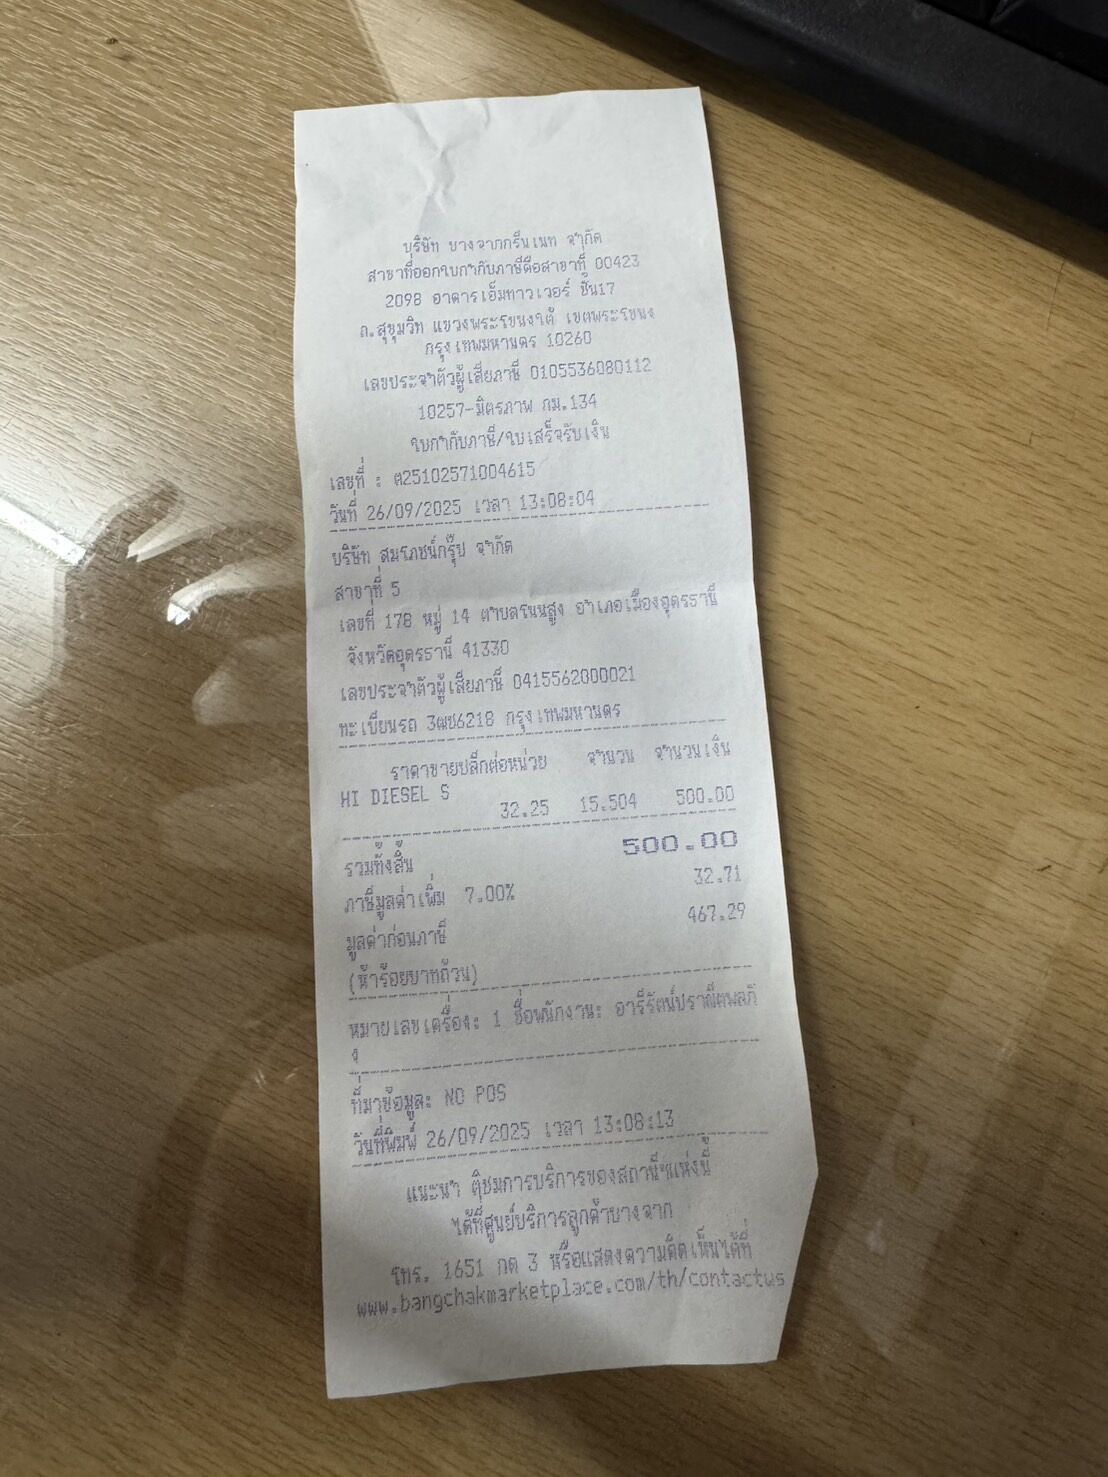 บริษัท บางจากกรีนเนท จำกัด
สาขาที่ออกใบกำกับภาษีคือสาขาที่ 00423
2098 อาคารเอ็มทาวเวอร์ ชั้น17
ถ.สุขุมวิท แขวงพระโขนงใต้ เขตพระโขนง
กรุงเทพมหานคร 10260
เลขประจำตัวผู้เสียภาษี 0105536080112
10257-มิตรภาพ กม.134
ใบกำกับภาษี/ใบเสร็จรับเงิน
เลขที่ : ต25102571004615
วันที่ 26/09/2025 เวลา 13:08:04
บริษัท สมโภชน์กรุ๊ป จำกัด
สาขาที่ 5
เลขที่ 178 หมู่ 14 ตำบลโนนสูง อำเภอเมืองอุดรธานี
จังหวัดอุดรธานี 41330
เลขประจำตัวผู้เสียภาษี 0415562000021
ทะเบียนรถ 3ฒช6218 กรุงเทพมหานคร
ราคาขายปลีกต่อหน่วย จำนวน จำนวนเงิน
HI DIESEL S
32.25 15.504 500.00
รวมทั้งสิ้น 500.00
ภาษีมูลค่าเพิ่ม 7.00% 32.71
มูลค่าก่อนภาษี 467.29
(ห้าร้อยบาทถ้วน)
หมายเลขเครื่อง: 1 ชื่อพนักงาน:
ที่มาข้อมูล: NO POS
วันที่พิมพ์ 26/09/2025 เวลา 13:08:13
แนะนำ ติชมการบริการของสถานีฯแห่งนี้
ได้ที่ศูนย์บริการลูกค้าบางจาก
โทร. 1651 กด 3 หรือแสดงความคิดเห็นได้ที่
www.bangchakmarketplace.com/th/contactus